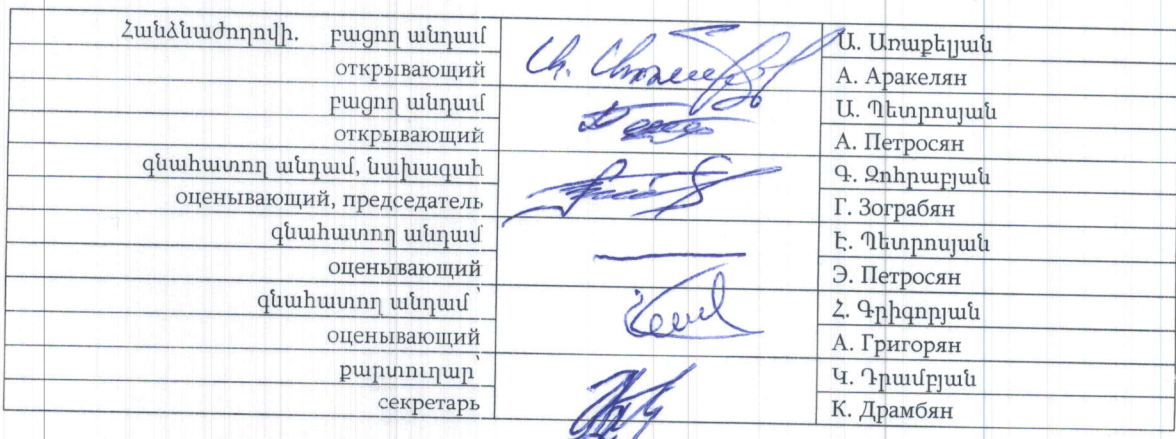 Հանձնաժողովի. բացող անդամ Ա. Առաքելյան
открывающий А. Аракелян
բացող անդամ Ա. Պետրոսյան
открывающий А. Петросян
գնահատող անդամ, նախագահ Գ. Զոհրաբյան
оценывающий, председатель Г. Зограбян
գնահատող անդամ Է. Պետրոսյան
оценывающий Э. Петросян
գնահատող անդամ ՝ Հ. Գրիգորյան
оценывающий А. Григорян
քարտուղար ՝ Կ. Դրամբյան
секретарь К. Драмбян